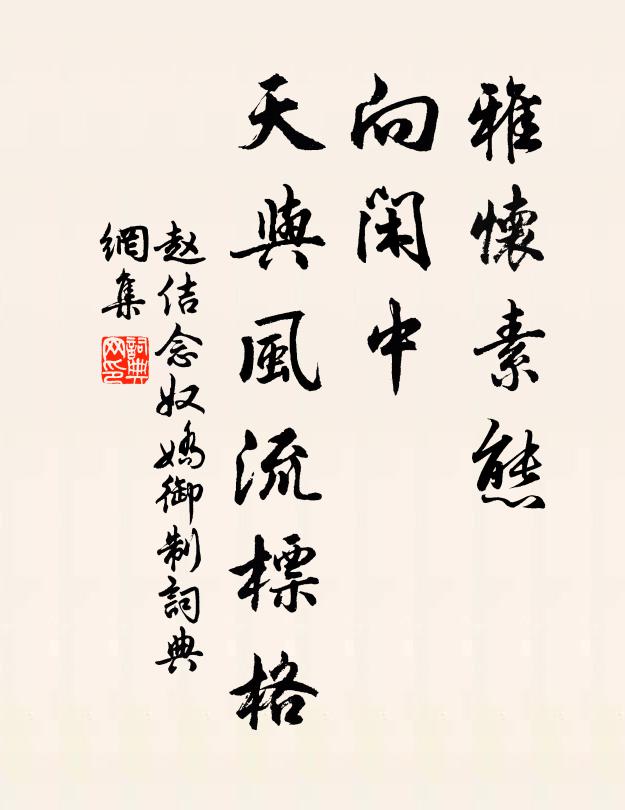 雅懷素態
向閑中
天與風流標格
赵佶念奴嬌御制詞典
網集
詞典網印